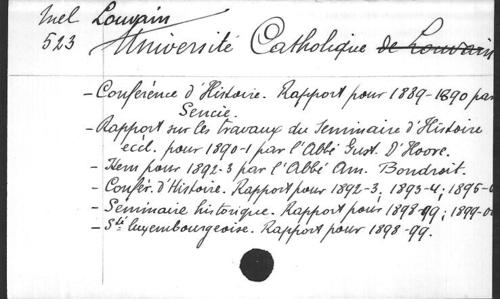 Mel Louvain
523 Université Catholique de Louvain
- Conférence d'Histoire. Rapport pour 1889-1890 par
Sencie.
- Rapport sur les travaux du Seminaire d'Histoire
eccl. pour 1890-1 par l'Abbé Gust. D'Hoore.
- Item pour 1892-3 par l'Abbé Am. Bondroit.
- Confér. d'Histoire. Rapport pour 1892-3; 1893-4; 1896-
- Seminaire historique. Rapport pour 1898-99; 1899-
- Sté luxembourgeoise. Rapport pour 1898-99.